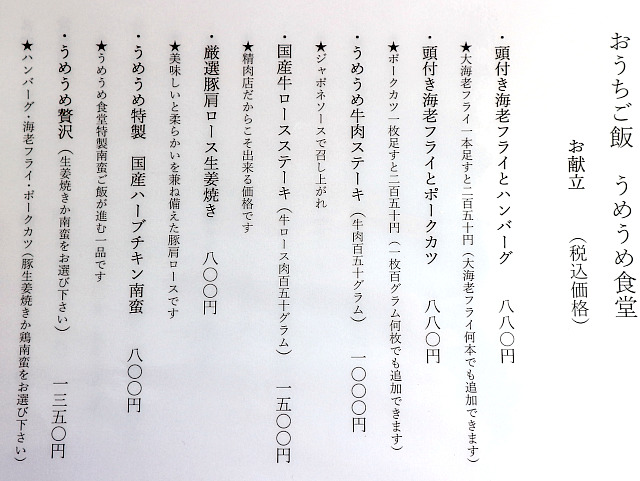 おうちご飯　うめうめ食堂
お献立　　（税込価格）
・頭付き海老フライとハンバーグ　　八八〇円
★大海老フライ一本足すと二百五十円（大海老フライ何本でも追加できます）
・頭付き海老フライとポークカツ　　八八〇円
★ポークカツ一枚足すと二百五十円（一枚百グラム何枚でも追加できます）
・うめうめ牛肉ステーキ（牛肉百五十グラム）　一〇〇〇円
★ジャポネソースで召し上がれ
・国産牛ロースステーキ（牛ロース肉百五十グラム）　一五〇〇円
★精肉店だからこそ出来る価格です
・厳選豚肩ロース生姜焼き　八〇〇円
★美味しいと柔らかいを兼ね備えた豚肩ロースです
・うめうめ特製　国産ハーブチキン南蛮　八〇〇円
★うめうめ食堂特製南蛮ご飯が進む一品です
・うめうめ贅沢（生姜焼きか南蛮をお選び下さい）　一三五〇円
★ハンバーグ・海老フライ・ポークカツ（豚生姜焼きか鶏南蛮をお選び下さい）